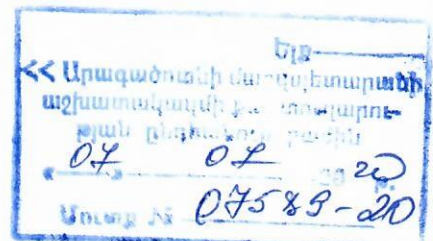 Ելք
<< Արագածոտնի մարզպետարանի
աշխատակազմի
թյան ընդհանուր բաժին
07 07 20 թ.
Մուտք № 07589-20